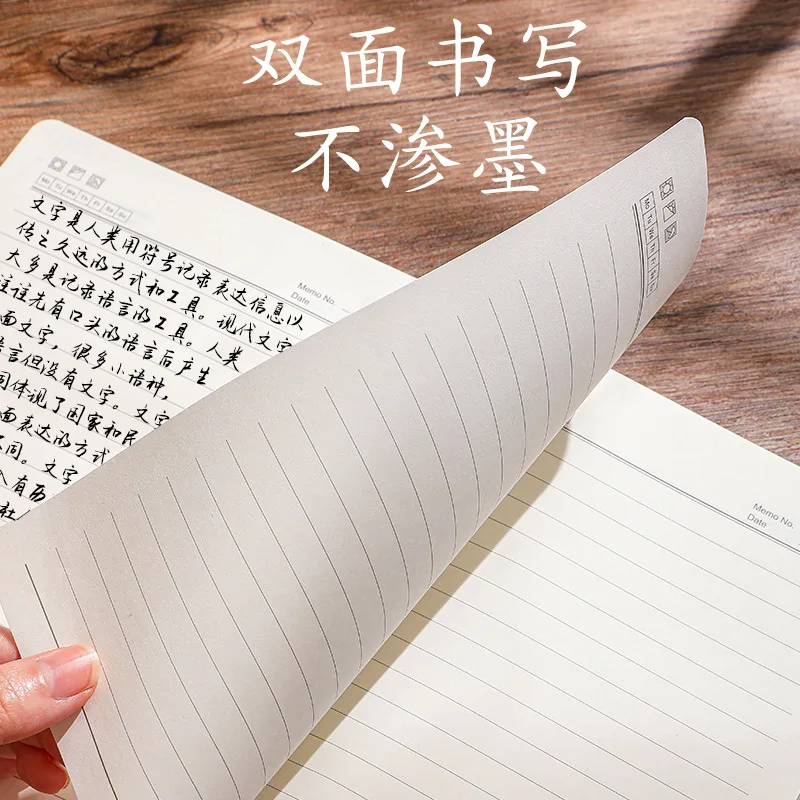 双面书写
不渗墨
Mo Tu We Th Fr Sa Su
Memo No.
Date
文字是人类用符号记录表达信息以
传之久远的方式和工具。现代文字
大多是记录语言的工具。人类
往往先有口头的语言后产生
面文字，很多小语种，
语言但没有文字。文字
同体现了国家和民
面表达的方式
不同。文字
入有历
社
Mo Tu We Th Fr Sa Su
Memo No.
Date